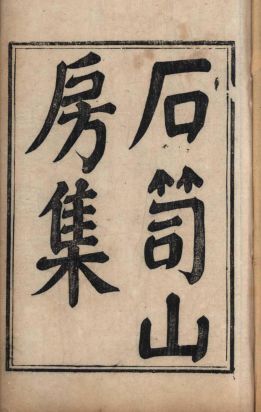 石笥山
房集